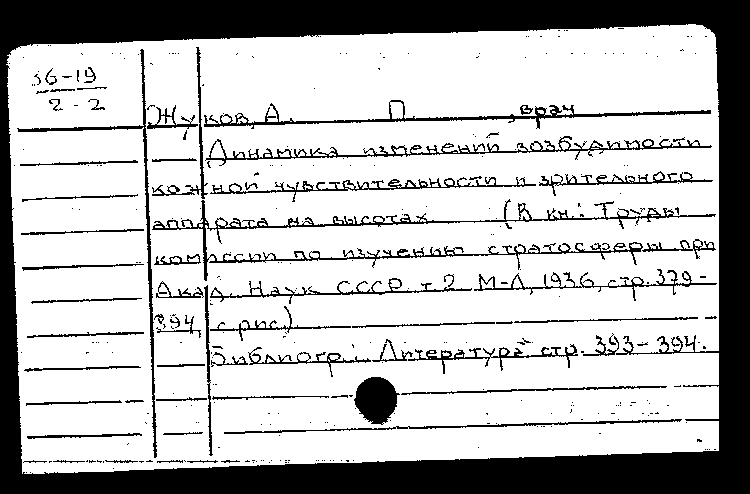 36-19
2-2
Жуков, А. П. , врач
Динамика изменений возбудимости
кожной чувствительности и зрительного
аппарата на высотах. (В кн.: Труды
комиссии по изучению стратосферы при
Акад. Наук СССР т 2 М-Л, 1936, стр. 379-
394, с рис.)
Библиогр.: "Литература" стр. 393-394.